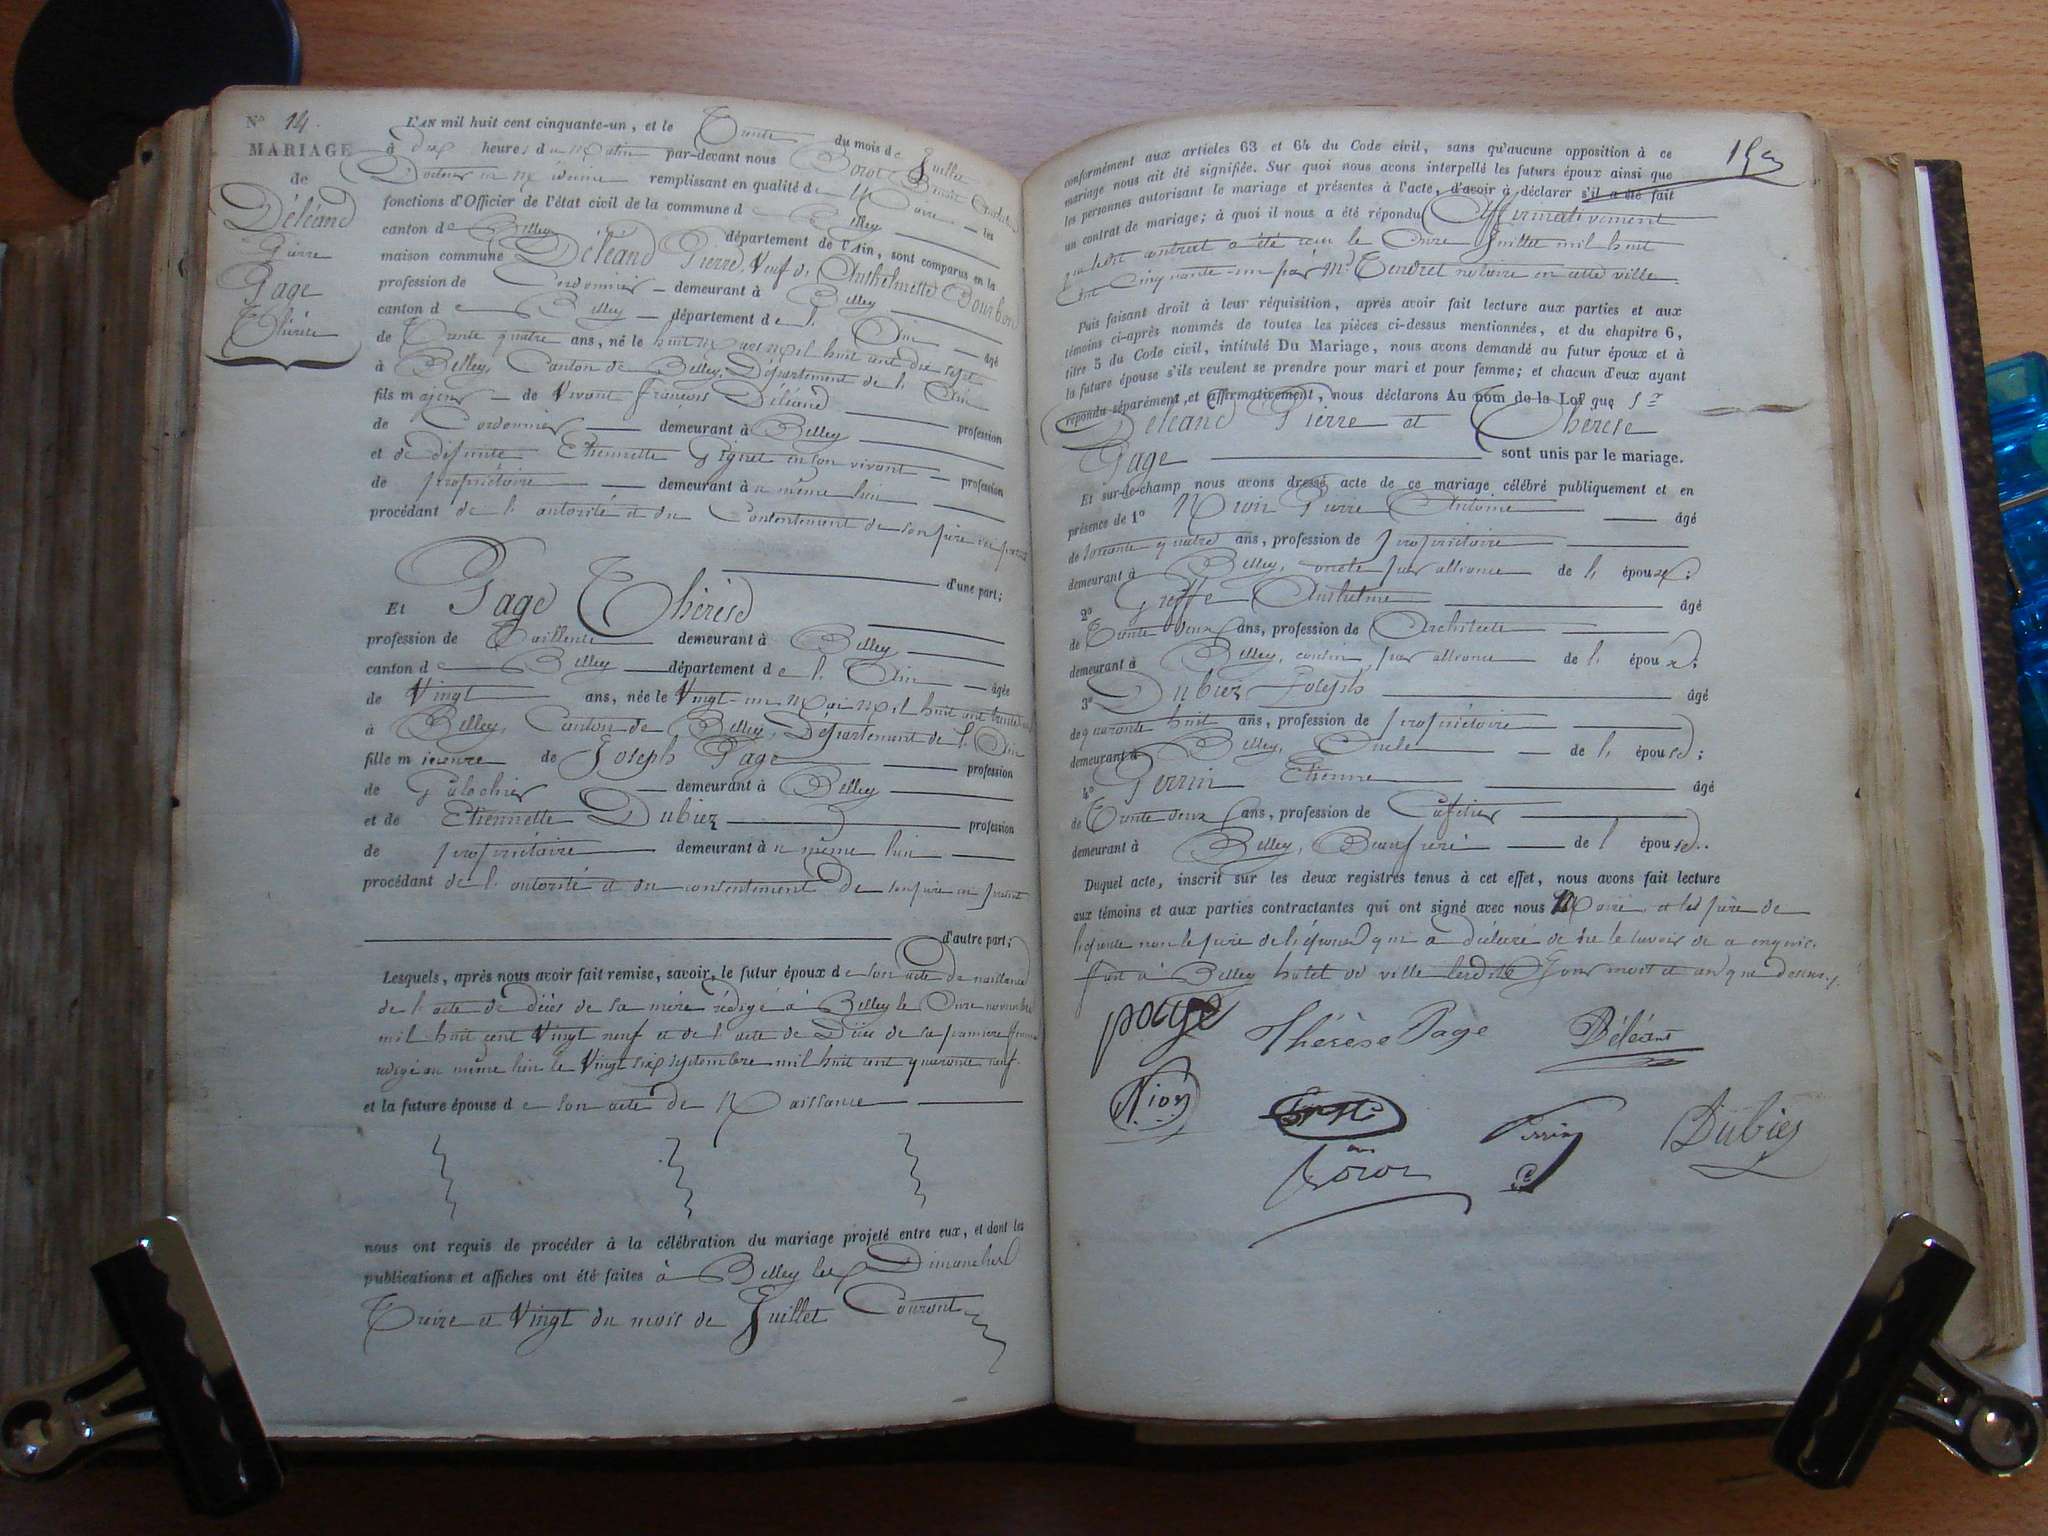 N° 14.
MARIAGE
de
Déléand
Pierre
Page
Thérèse
L'AN mil huit cent cinquante-un, et le Trente du mois de Juillet
à dix heures du Matin par-devant nous Borot Benoit
Docteur en Médecine remplissant en qualité de Maire les
fonctions d'Officier de l'état civil de la commune de Belley
canton de Belley département de l'Ain, sont comparus en la
maison commune Déléand Pierre, Veuf de Anthelmette Bourbon
profession de Cordonnier demeurant à Belley
canton de Belley département de l'Ain âgé
de Trente quatre ans, né le huit Mars Mil huit cent dix sept
à Belley, Canton de Belley, Département de l'Ain
fils majeur de Vivant François Déléand profession
de Cordonnier demeurant à Belley
et de défunte Etiennette Gignet en son vivant profession
de propriétaire demeurant au même lieu
procédant de l'autorité et du Consentement de son père ici présent
d'une part;
Et Page Thérèse
profession de Tailleuse demeurant à Belley
canton de Belley département de l'Ain âgée
de Vingt ans, née le Vingt-un Mai Mil huit cent trente un
à Belley, Canton de Belley, Département de l'Ain
fille mineure de Joseph Page profession
de Galochier demeurant à Belley
et de Etiennette Dubiez profession
de propriétaire demeurant au même lieu
procédant de l'autorité et du consentement de son père ici présent
d'autre part;
Lesquels, après nous avoir fait remise, savoir, le futur époux de son acte de naissance
de l'acte de décès de sa mère rédigé à Belley le Onze novembre
mil huit cent Vingt neuf et de l'acte de Décès de sa première femme
rédigé au même lieu le Vingt six septembre mil huit cent quarante neuf.
et la future épouse de son acte de Naissance
nous ont requis de procéder à la célébration du mariage projeté entre eux, et dont les
publications et affiches ont été faites à Belley les Dimanches
Treize et Vingt du mois de Juillet Courant
153
conformément aux articles 63 et 64 du Code civil, sans qu'aucune opposition à ce
mariage nous ait été signifiée. Sur quoi nous avons interpellé les futurs époux ainsi que
les personnes autorisant le mariage et présentes à l'acte, d'avoir à déclarer s'il a été fait
un contrat de mariage; à quoi il nous a été répondu Affirmativement
que ledit contrat a été reçu le Onze Juillet mil huit
Cent Cinquante-un par Md Tendret notaire en cette ville.
Puis faisant droit à leur réquisition, après avoir fait lecture aux parties et aux
témoins ci-après nommés de toutes les pièces ci-dessus mentionnées, et du chapitre 6,
titre 5 du Code civil, intitulé Du Mariage, nous avons demandé au futur époux et à
la future épouse s'ils veulent se prendre pour mari et pour femme; et chacun d'eux ayant
répondu séparément et affirmativement, nous déclarons Au nom de la Loi que Sr
Déléand Pierre et Thérèse
Page sont unis par le mariage.
Et sur-le-champ nous avons dressé acte de ce mariage célébré publiquement et en
présence de 1° Nion Pierre Antoine âgé
de soixante quatre ans, profession de propriétaire
demeurant à Belley, oncle par alliance de l'épouse;
2° Greffe Anthelme âgé
de Trente deux ans, profession de Architecte
demeurant à Belley, cousin par alliance de l'époux;
3° Dubiez Joseph âgé
de quarante huit ans, profession de propriétaire
demeurant à Belley, Oncle de l'épouse;
4° Perrin Etienne âgé
de Trente deux ans, profession de Cafetier
demeurant à Belley, Beau frère de l'épouse..
Duquel acte, inscrit sur les deux registres tenus à cet effet, nous avons fait lecture
aux témoins et aux parties contractantes qui ont signé avec nous Maire, et les père de
l'épouse non le père de l'époux qui a déclaré de ne le savoir de ce enquis.
fait à Belley hotel de ville lesdits Jour mois et an que dessus.
page Thérèse Page Déléant
Nion Perrin Dubiez
Borot